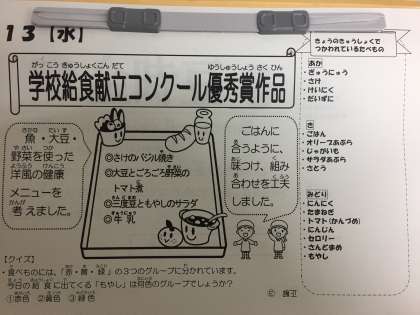 13【水】
がっこうきゅうしょくこんだて
ゆうしゅうしょうさくひん
学校給食献立コンクール優秀賞作品
魚・大豆・
野菜を使った
洋風の健康
メニューを
考えました。
◎さけのバジル焼き
◎大豆とごろごろ野菜の
トマト煮
◎三度豆ともやしのサラダ
◎牛乳
ごはんに
合うように、
味つけ、組み
合わせを工夫
しました。
【クイズ】
・食べものには、「赤・黄・緑」の3つのグループに分かれています。
今日の給食に出てくる「もやし」は何色のグループでしょうか?
①赤色 ②黄色 ③緑色
きょうのきゅうしょくで
つかわれているたべもの
あか
・ぎゅうにゅう
・さけ
・けいにく
・だいず
き
・ごはん
・オリーブあぶら
・じゃがいも
・サラダあぶら
・さとう
みどり
・にんにく
・たまねぎ
・トマト(かんづめ)
・にんじん
・セロリー
・さんどまめ
・もやし